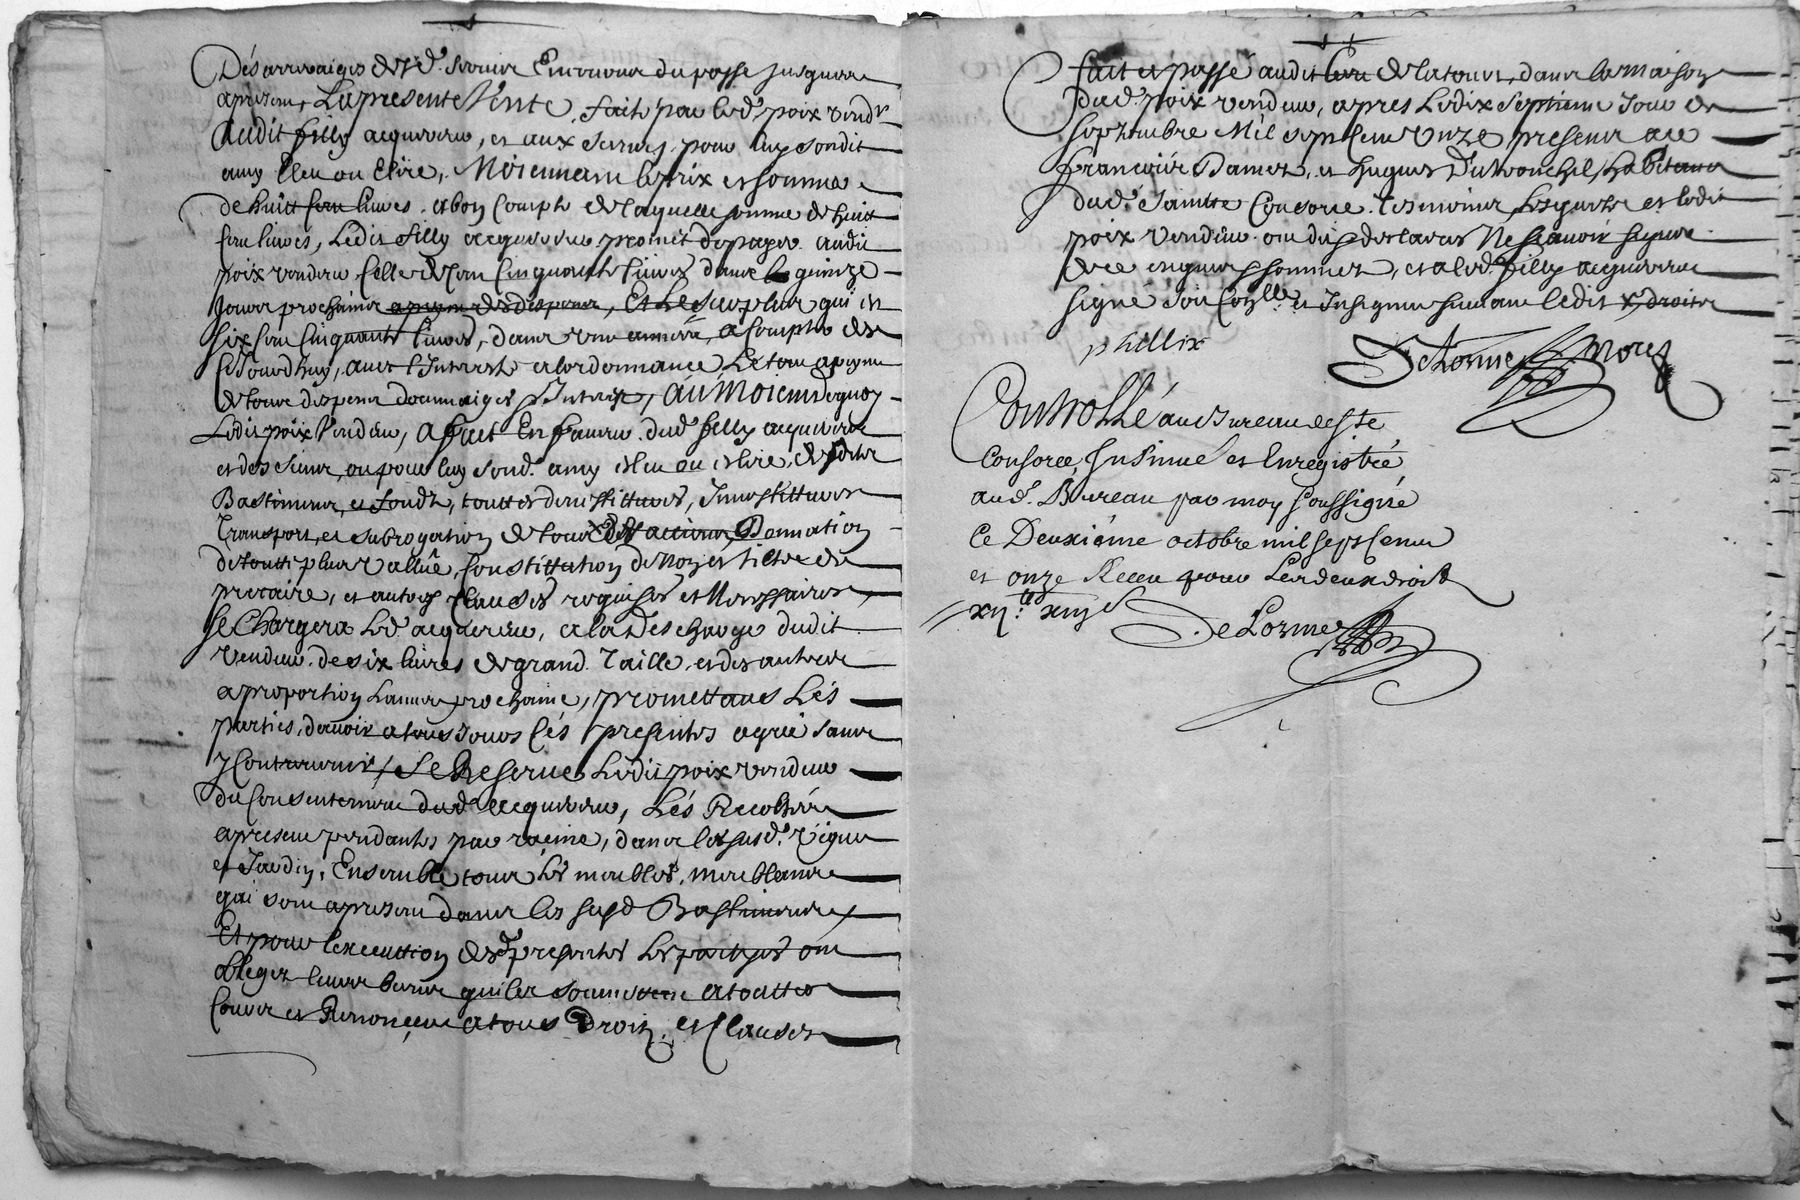 Dés arreraiges desd. servis Encouru du passé jusques
apresent, La presente Vente, faite par led. poix vendr
audit filly acquereur, et aux siens, pour luy sondit
amy Eleu ou Elire, Moiennant le prix et somme
de huict cent livres, et bon compte de laquelle somme de huict
cent livres, Ledit filly acquereur promet de payer audit
poix vendeur, Celle de cent Cinquante livres dans le quinze
Jours prochains apeyne de despens, Et Le surplus qui est
six cent Cinquante livres, dans une année, a compter de
ce Jourdhuy, avec l'Interest a l'ordonnance, Le tout apeyne
de tous despens dommaiges Interest, AU MOIEN dequoy
Ledit poix Vendeur, A fait En faveur dud. filly acquereur
et des siens, ou pour luy sond. amy esleu ou eslire, desdites
Bastiments, et fonds, touttes devestitures, Investitures
Transport, et subrogation de tous droits actions, Donnation
de toutte plus vallue, Constitution de Nom et tiltre de
precaire, et autres clauses requises et Necessaires,
Se Chargera Led. acquereur, a la descharge dudit
Vendeur de six livres de grand Taille, et des autres
a proportion L'année prochaine, promettans Lés
parties, d'avoir a tous Jours Cés presentes agreé sans
y Contrevenir, Se Reserve Ledit poix vendeur
du Consentement dud. acquereur, Lés Recoltes
apresent pendantes par racine, dans les susd. vigne
et Jardin, Ensemble tous les meubles, meublants
qui sont apresent dans les susd Bastiments,
Et pour l'execution desd. presentes les parties ont
obligez leurs biens quiles soumettent a touttes
Cours et Renonçent a tous Droits, et Clauses
fait et passé audit lieu de la tour, dans la maison
dud. poix vendeur, apres Le dix septieme Jour de
septembre Mil sept cent Unze presents
françois Damez, et hugues Dutronchel, habitants
dud. Sainte Consorce tesmoins Lesquels et ledit
poix vendeur ont dit et declarés Ne sçavoir signer
de ce enquis et sommez, et a led. filly acquereur
signé soit Con.lle et Insigner suivant l'edit et droits
phillix
Delorme
Controllé au Bureau de Ste
Consorce, Insinué et Enregistré
aud. Bureau par moy soussigné
Ce Deuxiéme octobre mil sept Cent
et onze Receu pour Les deux droits
DeLorme